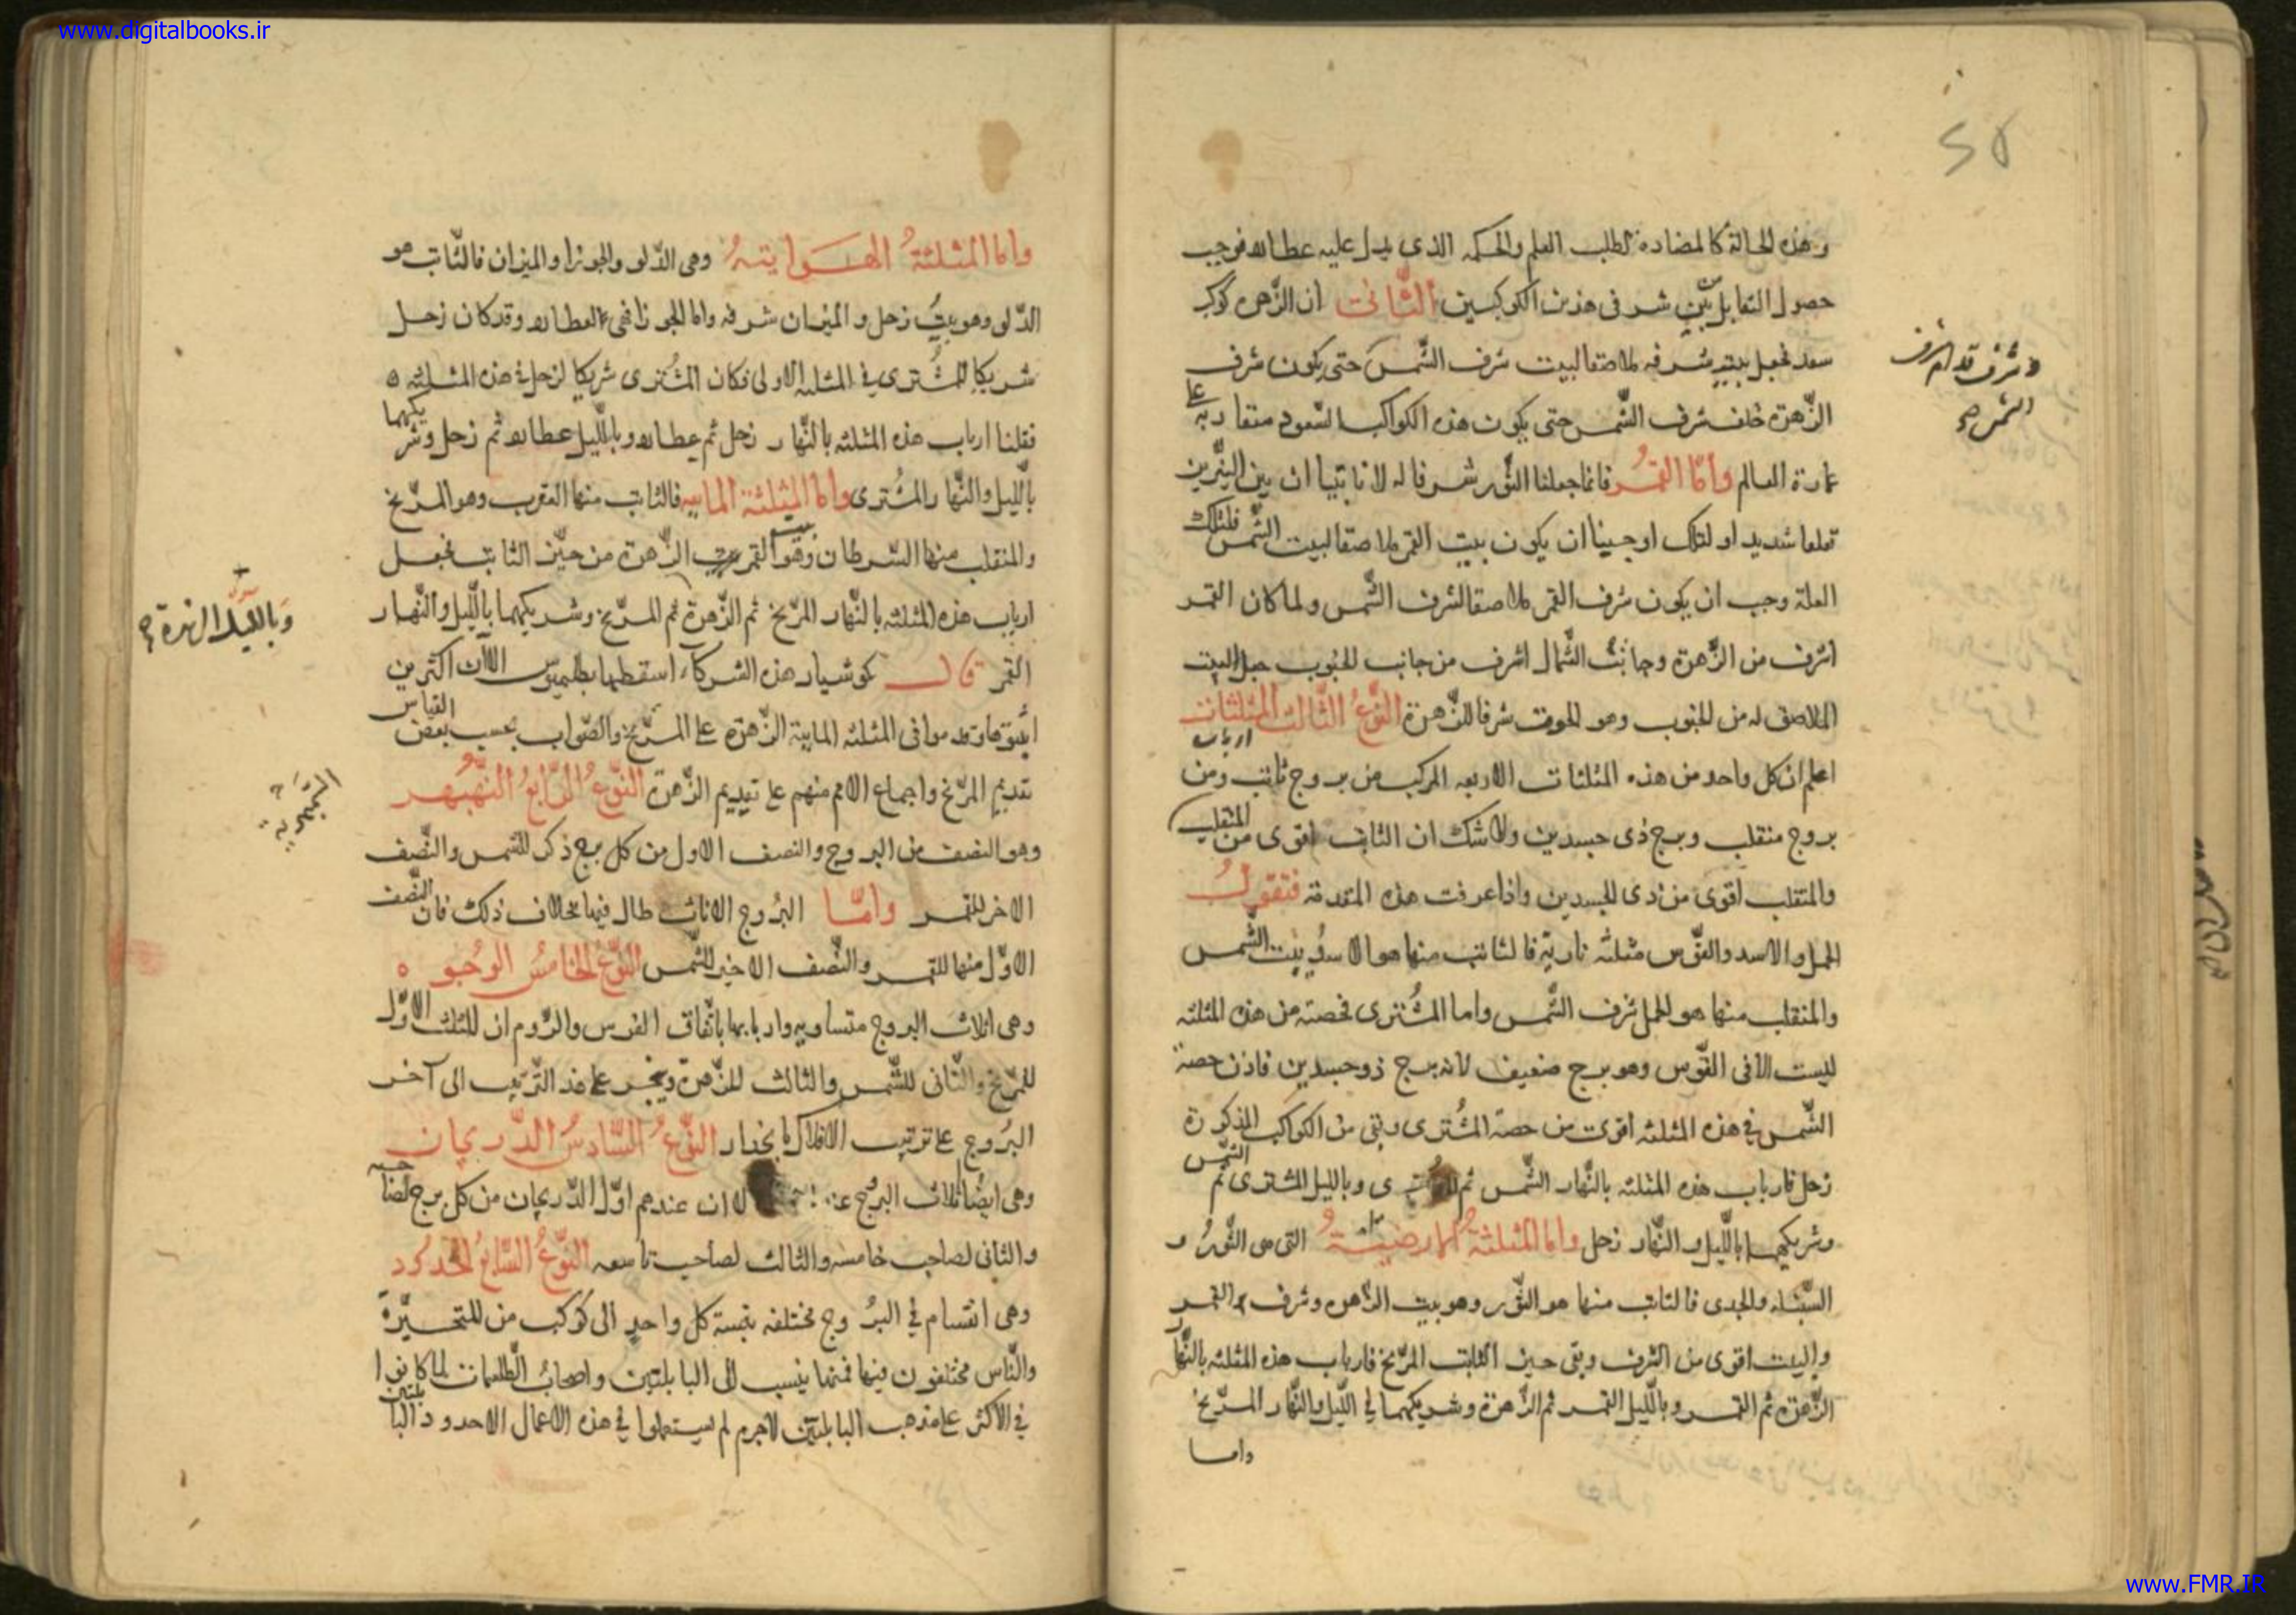 www.digitalbooks.ir
وهذه الحالة كالمضادة لطلب العلم والحكمة الذى يدل عليه عطارد فوجب
حصول التقابل بين شرفى هذين الكوكبين الثانى ان الزهره كوكب
سعد فجعل بيت شرفه ملاصقا لبيت شرف الشمس حتى يكون شرف
الزهرة خلف شرف الشمس حتى يكون هذه الكواكب السعود متقاربة على
عمارة العالم واما القمر فانما جعلنا الثور شرفا له لانا بينا ان بين النيرين
تعلقا شديدا ولذلك اوجبنا ان يكون بيت القمر ملاصقا لبيت الشمس فلتلك
العلة وجب ان يكون شرف القمر ملاصقا لشرف الشمس ولما كان القمر
اشرف من الزهرة وجانب الشمال اشرف من جانب الجنوب جعل البيت
الملاصق له من الجنوب وهو الحوت شرفا للزهرة النوع الثالث المثلثات
ارباب
اعلم ان كل واحد من هذه المثلثات الاربعه المركب من بروج ثابت ومن
بروج منقلب وبرج ذى جسدين ولا شك ان الثابت اقوى من المنقلب
والمنقلب اقوى من ذى الجسدين واذا عرفت هذه المقدمة فنقول
الحمل والاسد والقوس مثلثه نارية فالثابت منها هو الاسد وبيت الشمس
والمنقلب منها هو الحمل شرف الشمس واما المشترى فحصته من هذه المثلثه
ليست الا فى القوس وهو برج ضعيف لانه برج ذو جسدين فاذن حصة
الشمس فى هذه المثلثه اقوى من حصة المشترى وبقى من الكواكب المذكورة
زحل فارباب هذه المثلثه بالنهار الشمس ثم المشترى وبالليل المشترى ثم الشمس
وشريكهما بالليل والنهار زحل واما المثلثة الارضية التى هى الثور و
السنبله والجدى فالثابت منها هو الثور وهو بيت الزهره وشرف القمر
والبيت اقوى من الشرف وبقى حيز الثابت المريخ فارباب هذه المثلثه بالنهار
الزهرة ثم القمر وبالليل القمر ثم الزهرة وشريكهما فى الليل والنهار المريخ
واما
الشمس
واما المثلثة الهوايته وهى الدلو والجوزا والميزان فالثابت هو
الدلو وهو بيت زحل والميزان شرفه واما الجوزا فهى لعطارد وقد كان زحل
شريكا للمشترى فى المثلثه الاولى فكان المشترى شريكا لزحل فى هذه المثلثه
فقلنا ارباب هذه المثلثه بالنهار زحل ثم عطارد وبالليل عطارد ثم زحل وشريكهما
بالليل والنهار المشترى واما المثلثة المائيه فالثابت منها العقرب وهو المريخ
والمنقلب منها السرطان وهو بيت القمر الزهرة من حيز الثابت فجعل
ارباب هذه المثلثه بالنهار المريخ ثم الزهرة ثم المريخ وشريكهما بالليل والنهار
القمر قال كوشيار هذه الشركاء اسقطها بطلميوس الا ان اكثرين
اثبتوها وقدموا فى المثلثه المايية الزهرة على المريخ والصواب بحسب بعض القياس
تقديم المريخ واجماع الامم منهم على تقديم الزهرة النوع الرابع النهبهر
وهو النصف من البروج والنصف الاول من كل برج ذكر للشمس والنصف
الاخر للقمر واما البروج الاناث طال فيها بخلاف ذلك فان النصف
الاول منها للقمر والنصف الاخير للشمس النوع الخامس الوجوه
وهى اثلاث البروج متساويه واربابها باتفاق الفرس والروم ان للثلث الاول
للمريخ والثانى للشمس والثالث للزهرة ويجر على هذا الترتيب الى آخر
البروج على ترتيب الافلاك بانحدار النوع السادس الدريجان
وهى ايضا ثلاث البروج لان عندهم اول الدريجان من كل برج لصاحبه
والثانى لصاحب خامسه والثالث لصاحب تاسعه النوع السابع الحدود
وهى اقسام فى البروج مختلفه بقسمة كل واحد الى كوكب من المتحيرة
والناس مختلفون فيها فمنها ينسب الى البابليين واصحاب الطلسمات لما كانوا
فى الاكثر على مذهب البابليين لاجرم لم يستعملوا فى هذه الاعمال الا حدود البابليين
وبالليل الزهرة
www.FMR.IR